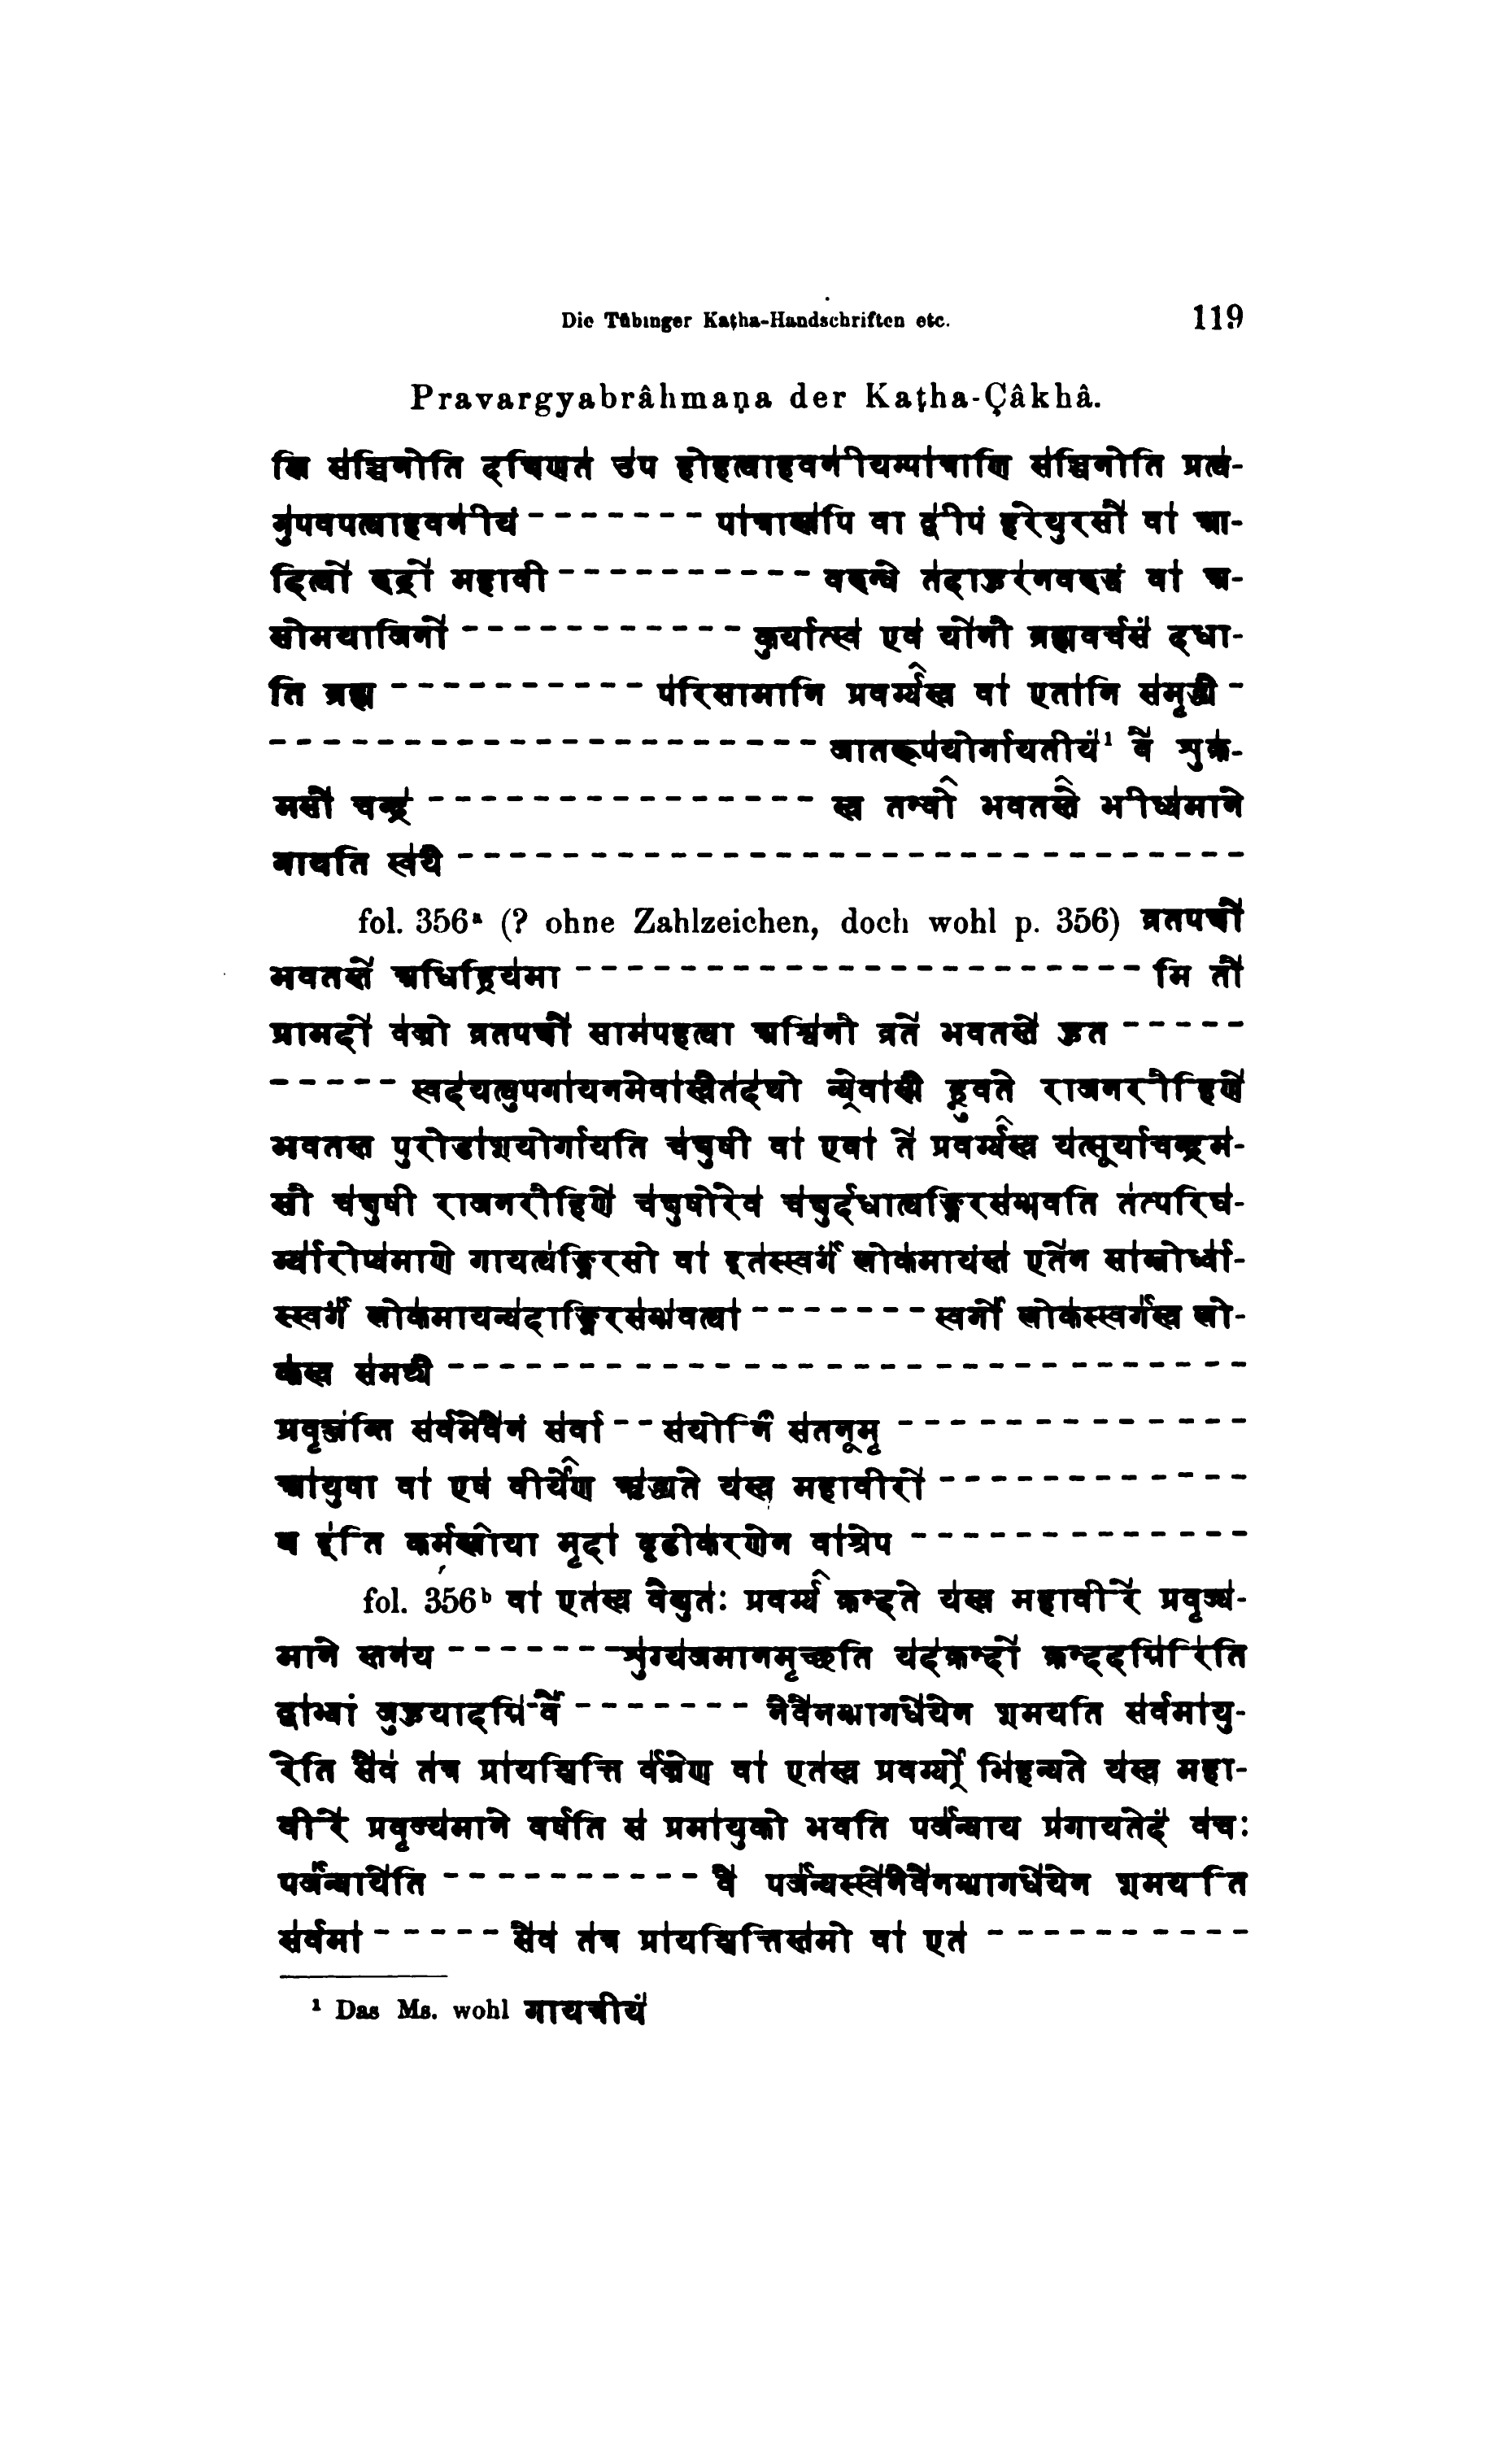 Die Tübinger Kaṭha-Handschriften etc. 119
Pravargyabrâhmaṇa der Kaṭha-Çâkhâ.
संचिनोति दक्षिणत उप संचिनोति
पात्राण्यपि वा द्वीपं हरेयुरसौ वा आ-
दित्यो रुद्रो महावी - - - - - - - - - - वरुन्धे तदाहुरनवरुद्धं वा अ-
सोमयाजिनो - - - - - - - - - - - कुर्यात्स्व एव योनौ ब्रह्मवर्चसं दधा-
ति ब्रह्म - - - - - - - - - - परिसामानि प्रवर्ग्यस्य वा एतानि समृद्धी -
- - - - - - - - - - - - - - - - - - - - - जातरूपयोर्गायतीयं¹ वै शुक्र-
मसौ चन्द्र - - - - - - - - - - - - - - - स्य तन्वो भवतस्ते
गायति स्वयै - - - - - - - - - - - - - - - - - - - - - - - - - - - - - -
fol. 356ᵃ (? ohne Zahlzeichen, doch wohl p. 356) व्रतपक्षौ
भवतस्ते अधिह्रियमा - - - - - - - - - - - - - - - - - - - - - - मि तौ
व्रतपक्षौ अश्विनौ व्रते भवतस्ते हुत - - - - -
- - - - - राजनरौहिणे
भवतस्त पुरोडाशयोर्गायति चक्षुषी वा एवा ते प्रवर्ग्यस्य यत्सूर्याचन्द्रम-
सौ चक्षुषी राजनरौहिणे चक्षुषोरेव चक्षुर्दधात्याङ्गिरसम्भवति तत्परिघ-
र्म्यारोप्यमाणे गायत्यङ्गिरसो वा इतस्स्वर्गं लोकमायंस्त एतेन साम्नोर्ध्वा-
स्स्वर्गं लोकमायन्यदाङ्गिरसम्भवत्या - - - - - - - स्वर्गो लोकस्स्वर्गस्य लो-
कस्य समष्ट्यै - - - - - - - - - - - - - - - - - - - - - - - - - - - - - -
प्रवृञ्जन्ति सर्वमेवैनं सर्वा - - सयोनिं सतनूमृ - - - - - - - - - - - - -
आयुषा वा एष वीर्येण ऋद्ध्यते यस्य महावीरो - - - - - - - - - - - -
मृदा दृढीकरणेन वाश्रेप - - - - - - - - - - - - -
fol. 356ᵇ वा एतस्य वैद्युतः प्रवर्ग्य क्रन्दते यस्य महावीरे प्रवृज्य-
माने स्तनय - - - - - - - शुग्यजमानमृच्छति यदक्रन्दो क्रन्ददग्निरिति
द्वाभ्यां जुहुयादग्निर्वै - - - - - - - नैवैनम्भागधेयेन शमयति सर्वमायु-
रेति सैव तत्र प्रायश्चित्ति र्वज्रेण वा एतस्य प्रवर्ग्योऽभिहन्यते यस्य महा-
वीरे प्रवृज्यमाने वर्षति स प्रमायुको भवति पर्जन्याय प्रगायतेदं वचः
पर्जन्यायेति - - - - - - - - - - वै पर्जन्यस्स्वेनैवैनम्भागधेयेन शमयति
सर्वमा - - - - - सैव तत्र प्रायश्चित्तिस्तमो वा एत - - - - - - - - - -
¹ Das Ms. wohl गायत्रीयं